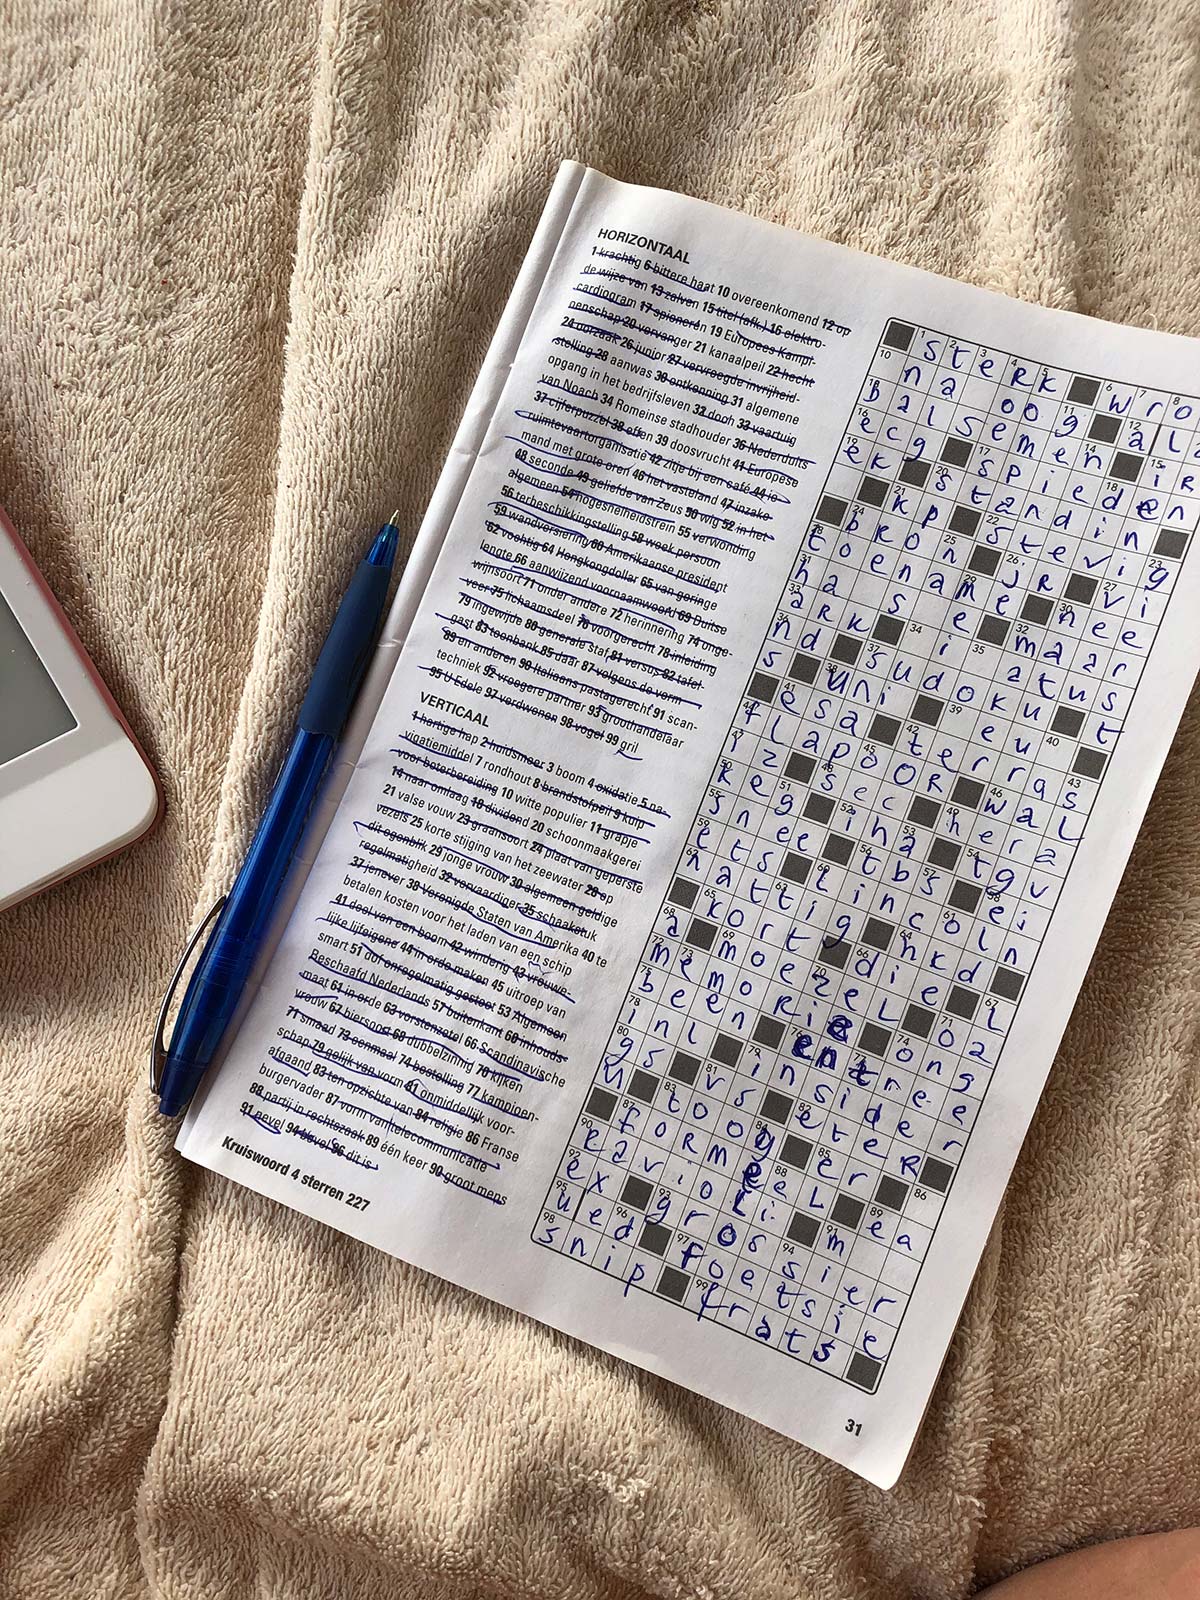 HORIZONTAAL
1 krachtig 6 bittere haat 10 overeenkomend 12 op
de wijze van 13 zalven 15 titel (afk.) 16 elektro-
cardiogram 17 spioneren 19 Europees Kampi-
oenschap 20 vervanger 21 kanaalpeil 22 hecht
24 oorzaak 26 junior 27 vervroegde invrijheid-
stelling 28 aanwas 30 ontkenning 31 algemene
opgang in het bedrijfsleven 32 doch 33 vaartuig
van Noach 34 Romeinse stadhouder 36 Nederduits
37 cijferpuzzel 38 effen 39 doosvrucht 41 Europese
ruimtevaartorganisatie 42 zitje bij een café 44 ie-
mand met grote oren 46 het vasteland 47 inzake
48 seconde 49 geliefde van Zeus 50 wig 52 in het
algemeen 54 hogesnelheidstrein 55 verwonding
56 terbeschikkingstelling 58 week persoon
59 wandversiering 60 Amerikaanse president
62 vochtig 64 Hongkongdollar 65 van geringe
lengte 66 aanwijzend voornaamwoord 69 Duitse
wijnsoort 71 onder andere 72 herinnering 74 onge-
veer 75 lichaamsdeel 76 voorgerecht 78 inleiding
79 ingewijde 80 generale staf 81 versus 82 tafel-
gast 83 toonbank 85 daar 87 volgens de vorm
89 en anderen 90 Italiaans pastagerecht 91 scan-
techniek 92 vroegere partner 93 groothandelaar
95 U Edele 97 verdwenen 98 vogel 99 gril
VERTICAAL
1 hartige hap 2 huidsmeer 3 boom 4 oxidatie 5 na-
vigatiemiddel 7 rondhout 8 brandstofpeil 9 kuip
voor boterbereiding 10 witte populier 11 grapje
14 naar omlaag 18 dividend 20 schoonmaakgerei
21 valse vouw 23 graansoort 24 plaat van geperste
vezels 25 korte stijging van het zeewater 28 op
dit ogenblik 29 jonge vrouw 30 algemeen geldige
regelmatigheid 32 vervaardiger 35 schaakstuk
37 jenever 38 Verenigde Staten van Amerika 40 te
betalen kosten voor het laden van een schip
41 deel van een boom 42 winderig 43 vrouwe-
lijke lijfeigene 44 in orde maken 45 uitroep van
smart 51 dof onregelmatig gestoot 53 Algemeen
Beschaafd Nederlands 57 buitenkant 60 inhouds-
maat 61 in orde 63 vorstenzetel 66 Scandinavische
vrouw 67 biersoort 69 dubbelzinnig 70 kijken
71 smaad 73 eenmaal 74 bestelling 77 kampioen-
schap 79 gelijk van vorm 81 onmiddellijk voor-
afgaand 83 ten opzichte van 84 religie 86 Franse
burgervader 87 vorm van telecommunicatie
88 partij in rechtszaak 89 één keer 90 groot mens
91 nevel 94 bevel 96 dit is
Kruiswoord 4 sterren 227
sterk wro
na oog al
balsemen ir
ecg spieden
ek standin
kp stevig
bron jr vi
toename nee
ha se maar
ark i atus
nd sudoku t
s uni eu
esa terras
flapoor wal
iz sec hera
keg iha tgv
snee tbs ei
ets Lincoln
nattig hkd
kort die L
a moezel oa
memorie ong
been entree
inl insider
gs vs eter
u toog er
formeel ea
ravioli m
ex grossier
ued foetsie
snip frats
31